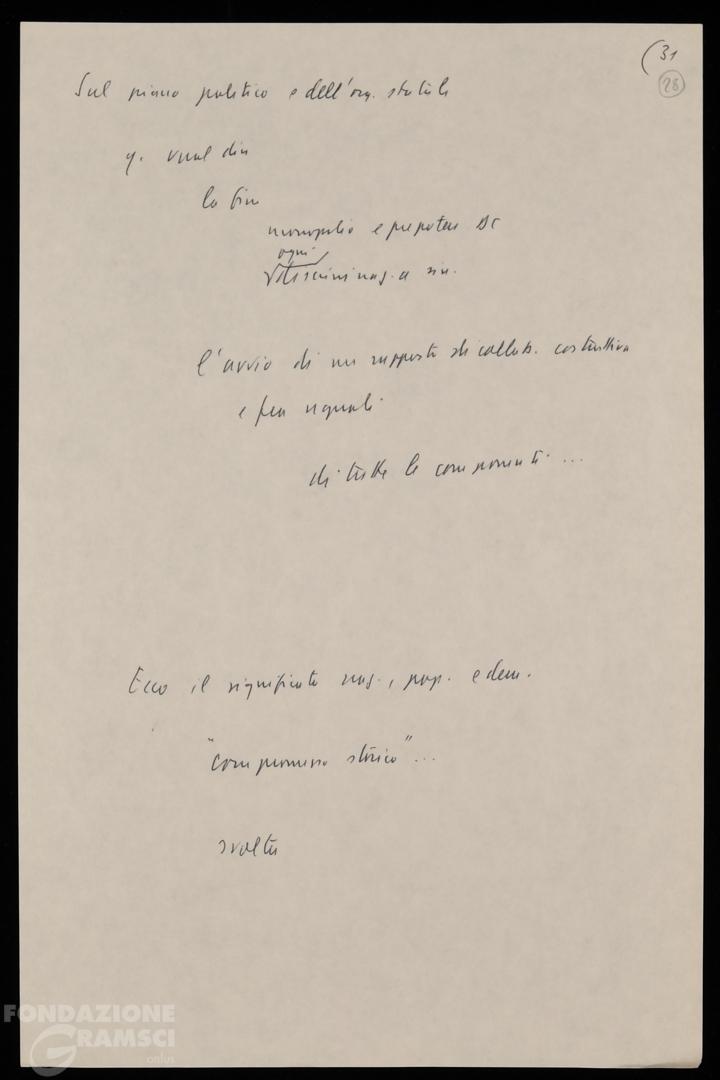 (31
28
Sul piano politico e dell'org. statale
q. vuol dire
la fine
monopolio e prepoten DC
ogni
discriminaz. a sin.
l'avvio di un rapporto di collab. costruttiva
e fra uguali
di tutte le componenti ...
Ecco il significato naz., pop. e dem.
"compromesso storico" ...
svolta
FONDAZIONE
GRAMSCI
onlus